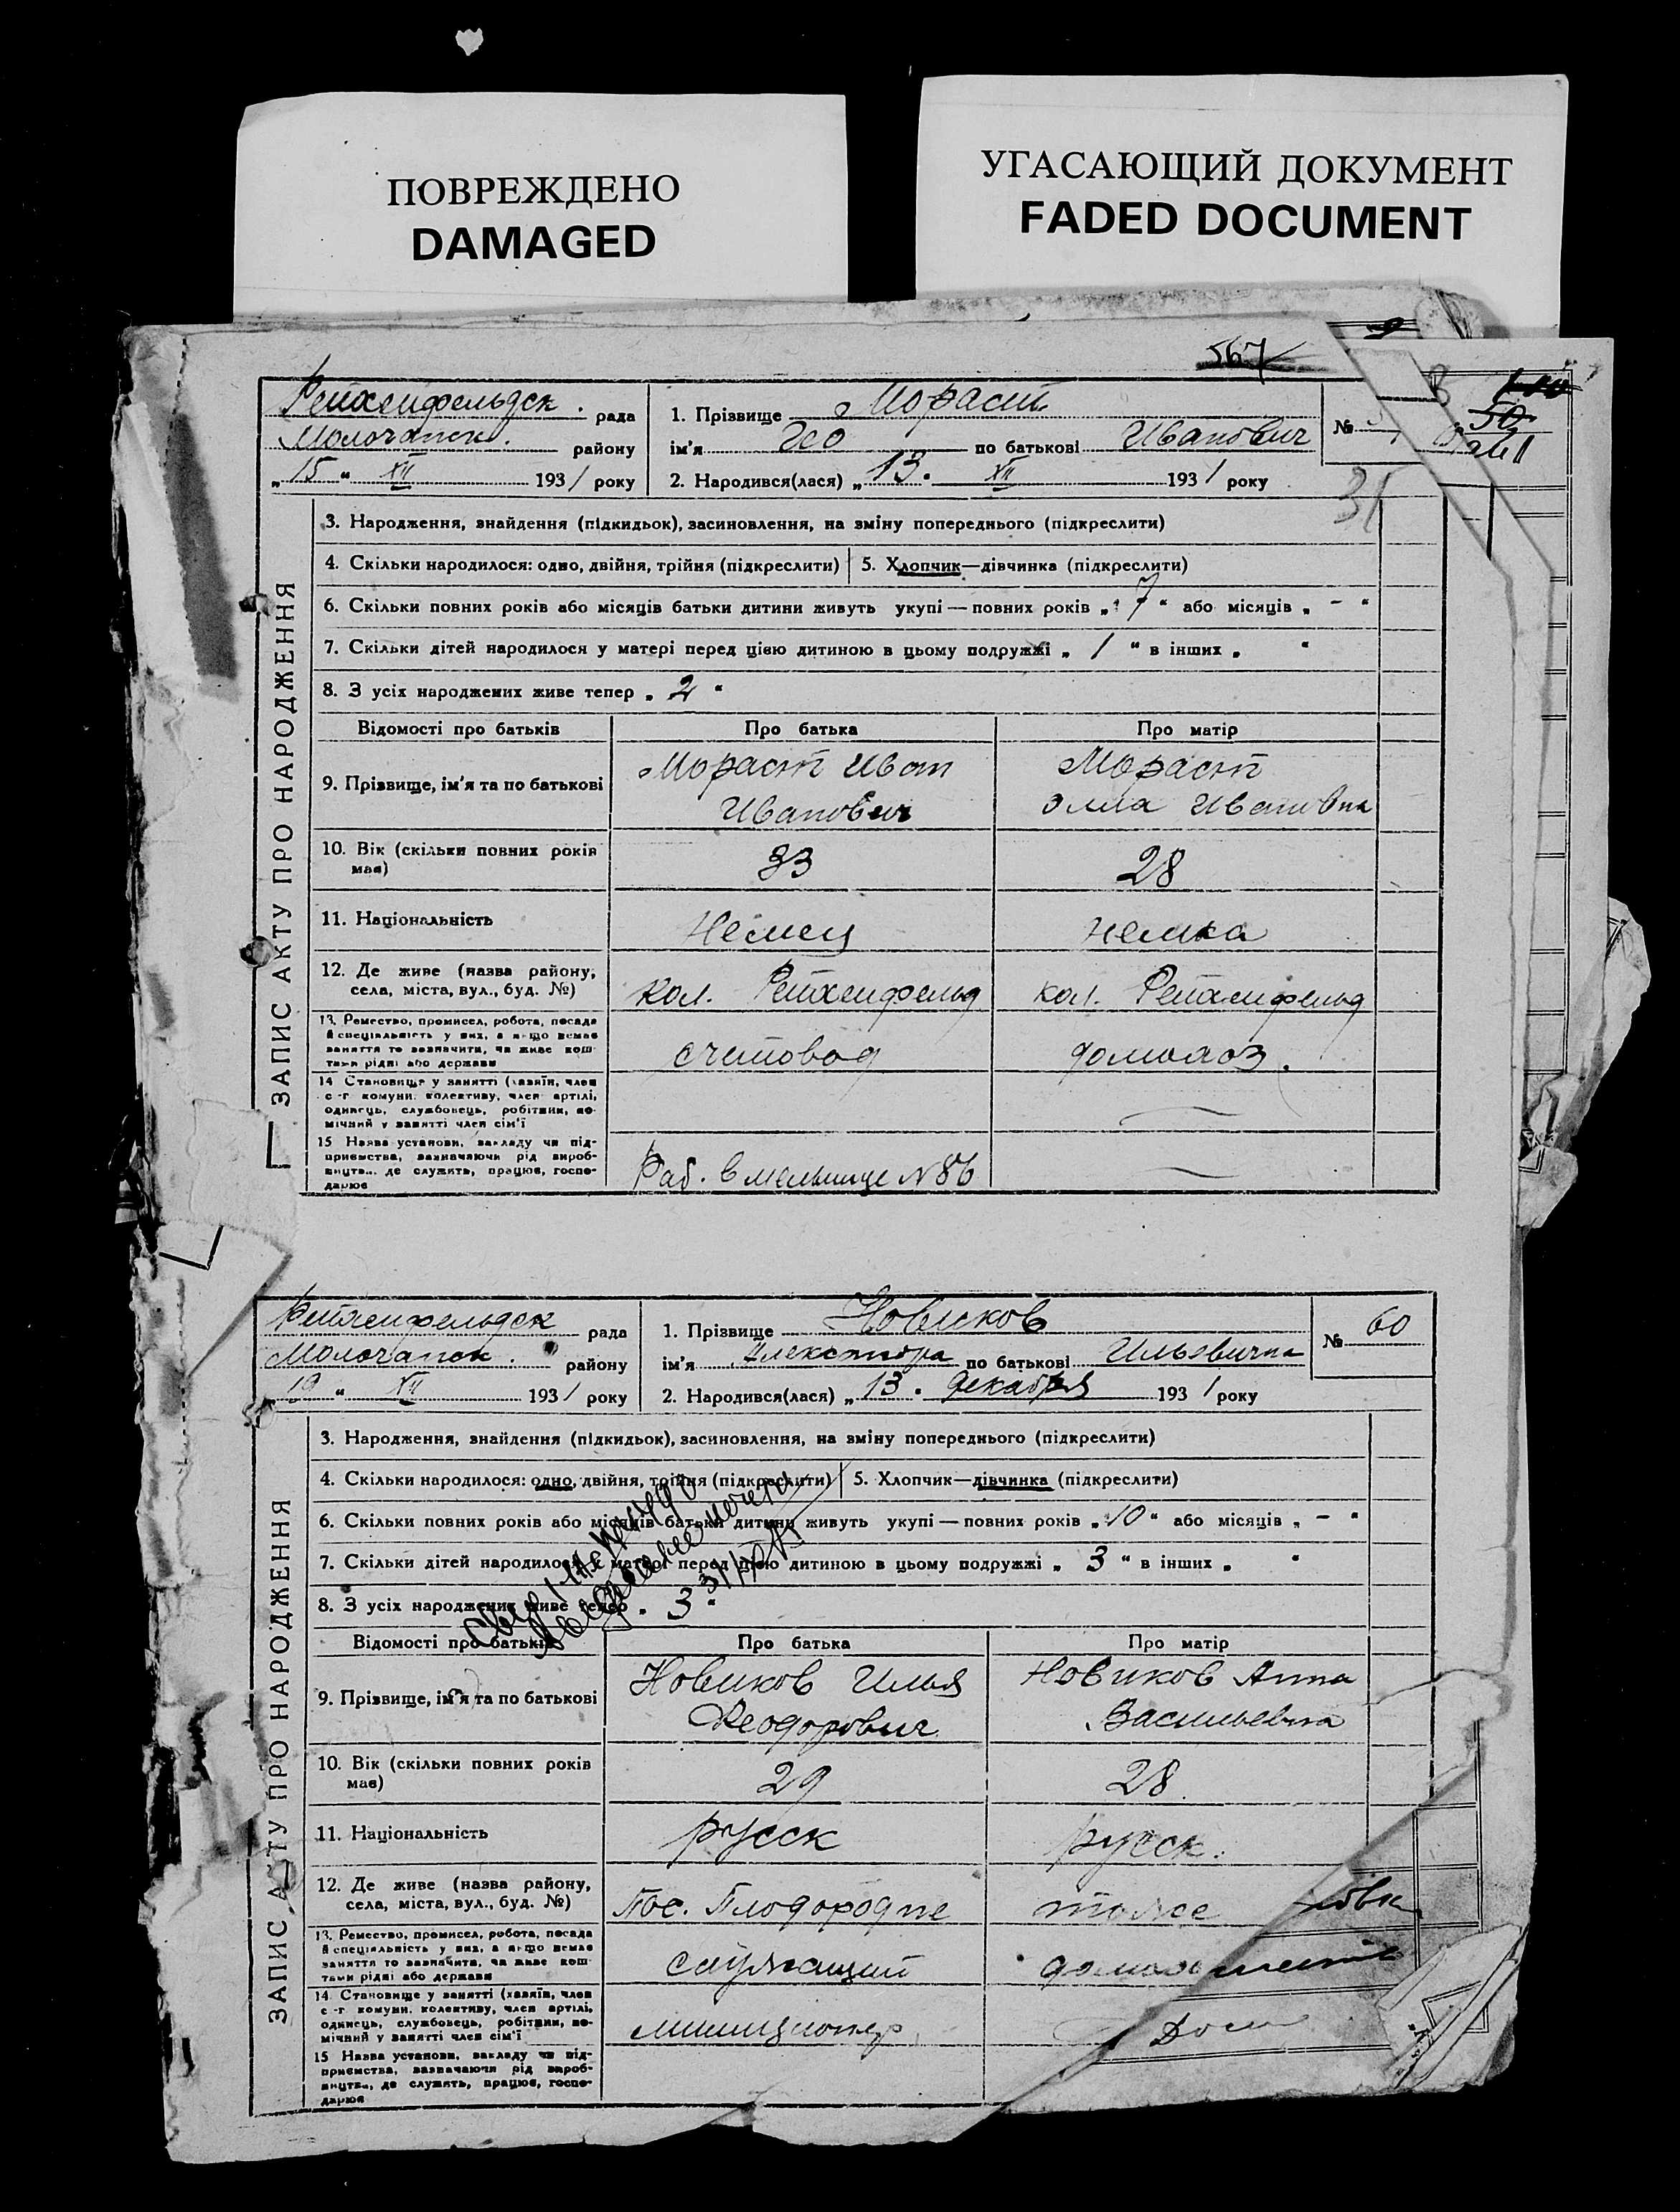 ПОВРЕЖДЕНО
DAMAGED
УГАСАЮЩИЙ ДОКУМЕНТ
FADED DOCUMENT
567
ЗАПИС АКТУ ПРО НАРОДЖЕННЯ
Рейхенфельдск. рада
Молочанск. району
„15“ XII 1931 року
1. Прізвище Мораст
ім'я Гео по батькові Иванович
2. Народився(лася) „13. XII 1931 року
№
31
3. Народження, знайдення (підкидьок), засиновлення, на зміну попереднього (підкреслити)
4. Скільки народилося: одно, двійня, трійня (підкреслити)
5. Хлопчик—дівчинка (підкреслити)
6. Скільки повних років або місяців батьки дитини живуть укупі — повних років „7“ або місяців „ – “
7. Скільки дітей народилося у матері перед цією дитиною в цьому подружжі „ 1 “ в інших „ “
8. З усіх народжених живе тепер „ 2 “
Відомості про батьків Про батька Про матір
9. Прізвище, ім'я та по батькові
Мораст Иван
Иванович
Мораст
Элла Ивановна
10. Вік (скільки повних років має)
33
28
11. Національність
Немец
немка
12. Де живе (назва району, села, міста, вул., буд. №)
кол. Рейхенфельд
кол. Рейхенфельд
13. Ремество, промисел, робота, посада й спеціяльність у них, а якщо немає заняття то зазначити, чи живе коштами рідні або держави
счетовод
домохоз.
14 Становище у занятті (хазяїн, член с.-г. комуни, колективу, член артілі, одинець, службовець, робітник, помічний у занятті член сім'ї
15 Назва установи, закладу чи підприємства, зазначаючи рід виробництва, де служить, працює, господарює
Раб. в мельнице №86
ЗАПИС АКТУ ПРО НАРОДЖЕННЯ
Рейхенфельдск рада
Молочанск. району
19 “ XII 1931 року
1. Прізвище Новиков
ім'я Александра по батькові Ильевична
2. Народився(лася) „13. декабря 1931 року
№ 60
3. Народження, знайдення (підкидьок), засиновлення, на зміну попереднього (підкреслити)
4. Скільки народилося: одно, двійня, трійня (підкреслити)
5. Хлопчик—дівчинка (підкреслити)
6. Скільки повних років або місяців батьки дитини живуть укупі — повних років „10“ або місяців „ – “
7. Скільки дітей народилося у матері перед цією дитиною в цьому подружжі „ 3 “ в інших „ “
8. З усіх народжених живе тепер „ 3 “
Відомості про батьків Про батька Про матір
9. Прізвище, ім'я та по батькові
Новиков Илья
Феодорович
Новиков Анна
Васильевна
10. Вік (скільки повних років має)
29
28
11. Національність
русск
русск.
12. Де живе (назва району, села, міста, вул., буд. №)
Пос. Плодородне
тоже
13. Ремество, промисел, робота, посада й спеціяльність у них, а якщо немає заняття то зазначити, чи живе коштами рідні або держави
служащий
14. Становище у занятті (хазяїн, член с.-г. комуни, колективу, член артілі, одинець, службовець, робітник, помічний у занятті член сім'ї
милиционер
15 Назва установи, закладу чи підприємства, зазначаючи рід виробництва, де служить, працює, господарює